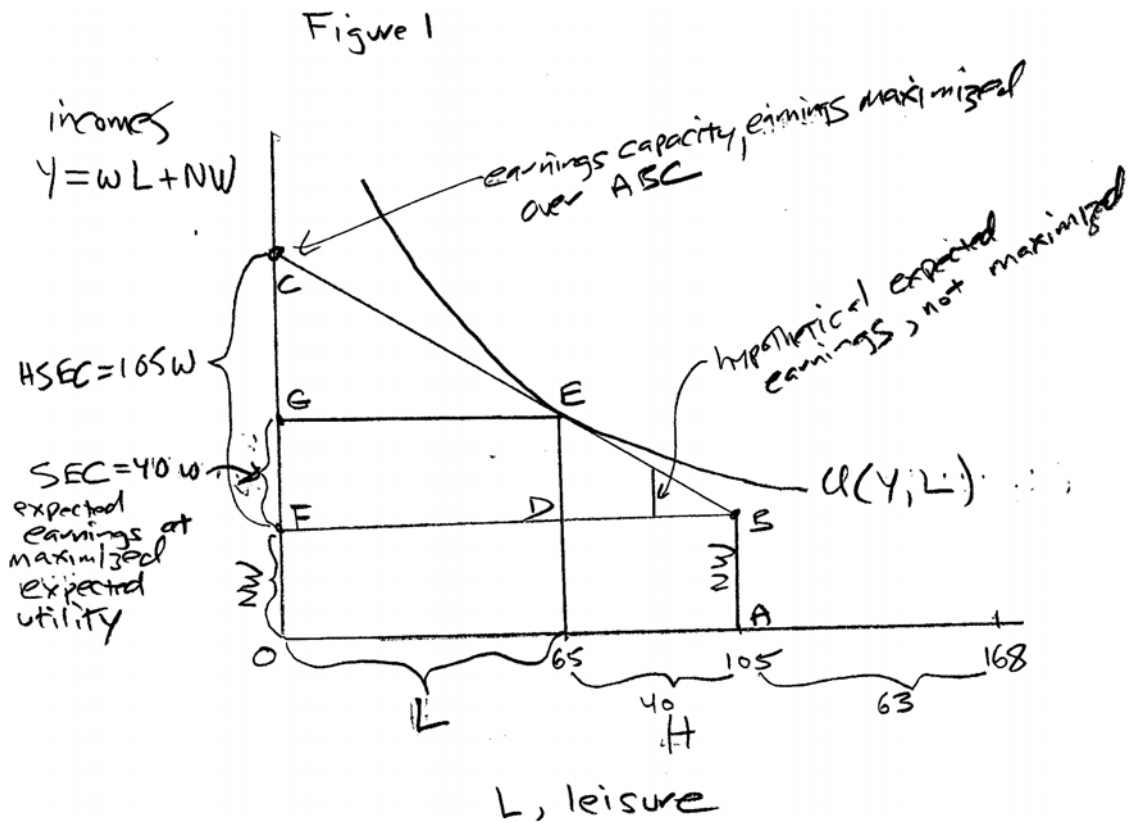 Figure 1
incomes
Y = wL + NW
earnings capacity, earnings maximized
over ABC
hypothetical expected
earnings, not maximized
C
HSEC=105W
G
E
SEC=40 w
expected
earnings at
maximized
expected
utility
F
D
B
U(Y,L)
NW
NW
A
0
65
105
168
L
40
H
63
L, leisure